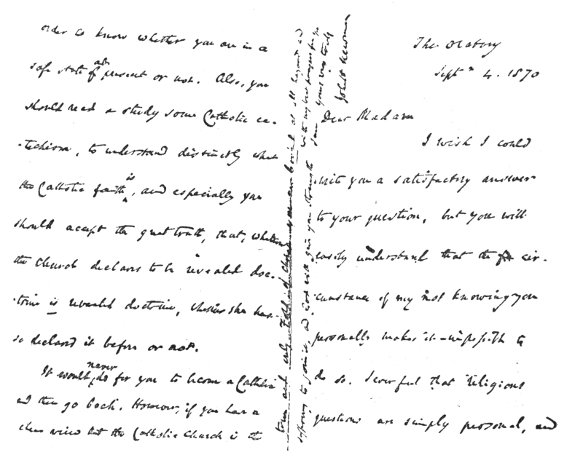 The Oratory
Septr 4. 1870
Dear Madam
I wish I could
write you a satisfactory answer
to your question, but you will
easily understand that the cir-
cumstance of my not knowing you
personally makes it impossible to
do so. I ever feel that religious
questions are simply personal, and
order to know whether you are in a
safe state at present or not. Also, you
should read & study some Catholic ca-
-techism, to understand distinctly what
the Catholic faith is, and especially you
should accept the great truth, that, whatever
the Church declares to be revealed doc-
-trine is revealed doctrine, whether she has
so declared it before or not.
It would never do for you to become a Catholic
and then go back. However, if you have a
clear view that the Catholic Church is the
true and only Fold of Christ, you are bound at all hazards and
to join it, and God will give you strength
with my best prayers for you
I am Yours very truly
John H Newman